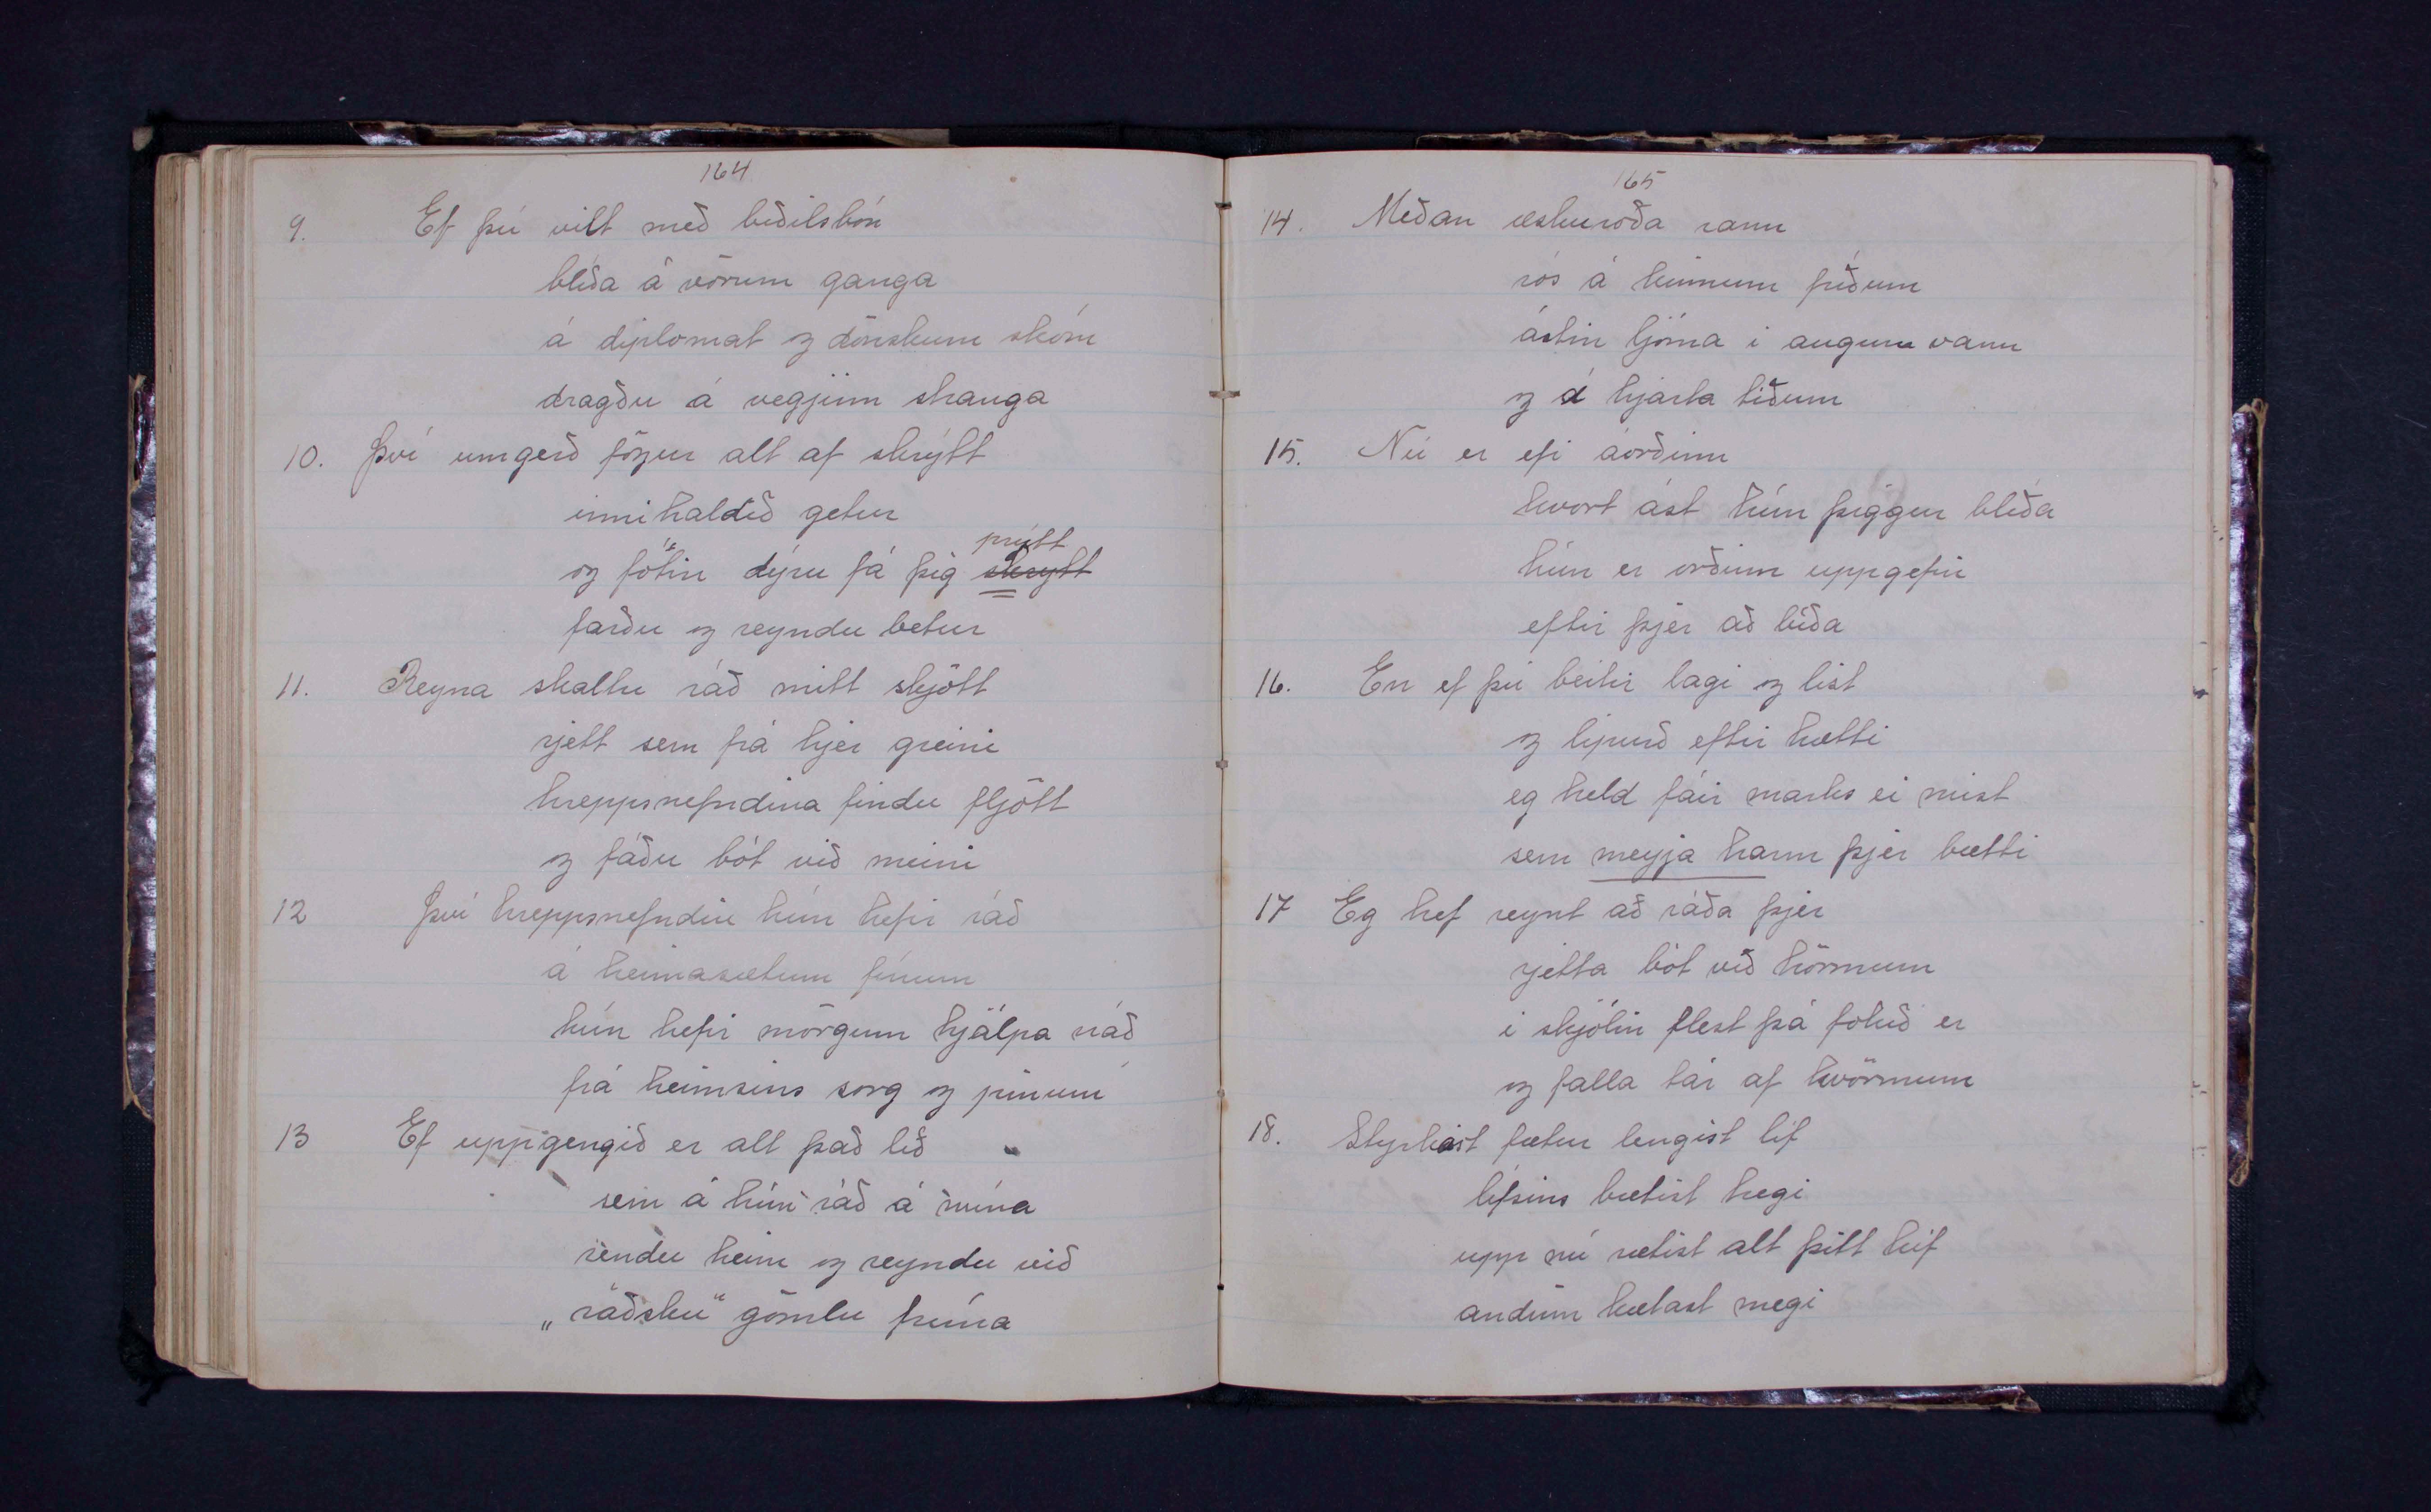 164
9. Ef þú vilt með biðilsbón
blíða á vörum ganga
á diplomat og dönskum skóm
dragðu á vegjinn stranga
10. Því umgerð fögur alt af skrýtt
innihaldið getur
prýtt
og fötin dýru fá þig skrytt
farðu og reyndu betur
11. Reyna skaltu ráð mitt skjótt
rjett sem frá hjer greini
hreppsnefndina findu fljótt
og fáðu bót við meini
12 Því hreppsnefndin hún hefir ráð
á heimasætum fínum
hún hefir mörgum hjálpa náð
frá heimsins sorg og pínum
13 Ef uppgengið er alt það lið
sem á hún ráð á núna
rendu heim og reyndu við
„ráðsku“ gömlu frúna
165
14. Meðan æskuroða rann
rós á kinnum fríðum
ástin ljóma i augum vann
og á hjarta tíðum
15. Nú er efi áorðinn
hvort ást hún þiggur blíða
hún er orðinn uppgefin
eftir þjer að bíða
16. En ef þú beitir lagi og list
og lipurð eftir hætti
eg held fáir marks ei mist
sem meyja harm þjer bætti
17 Eg hef reynt að ráða þjer
rjetta bót við hörmum
i skjólin flest þá fokið er
og falla tár af hvörmum
18. Styrkist fætur lengist líf
lífsins bætist hægi
upp nú rætist alt þitt kíf
andinn kætast megi